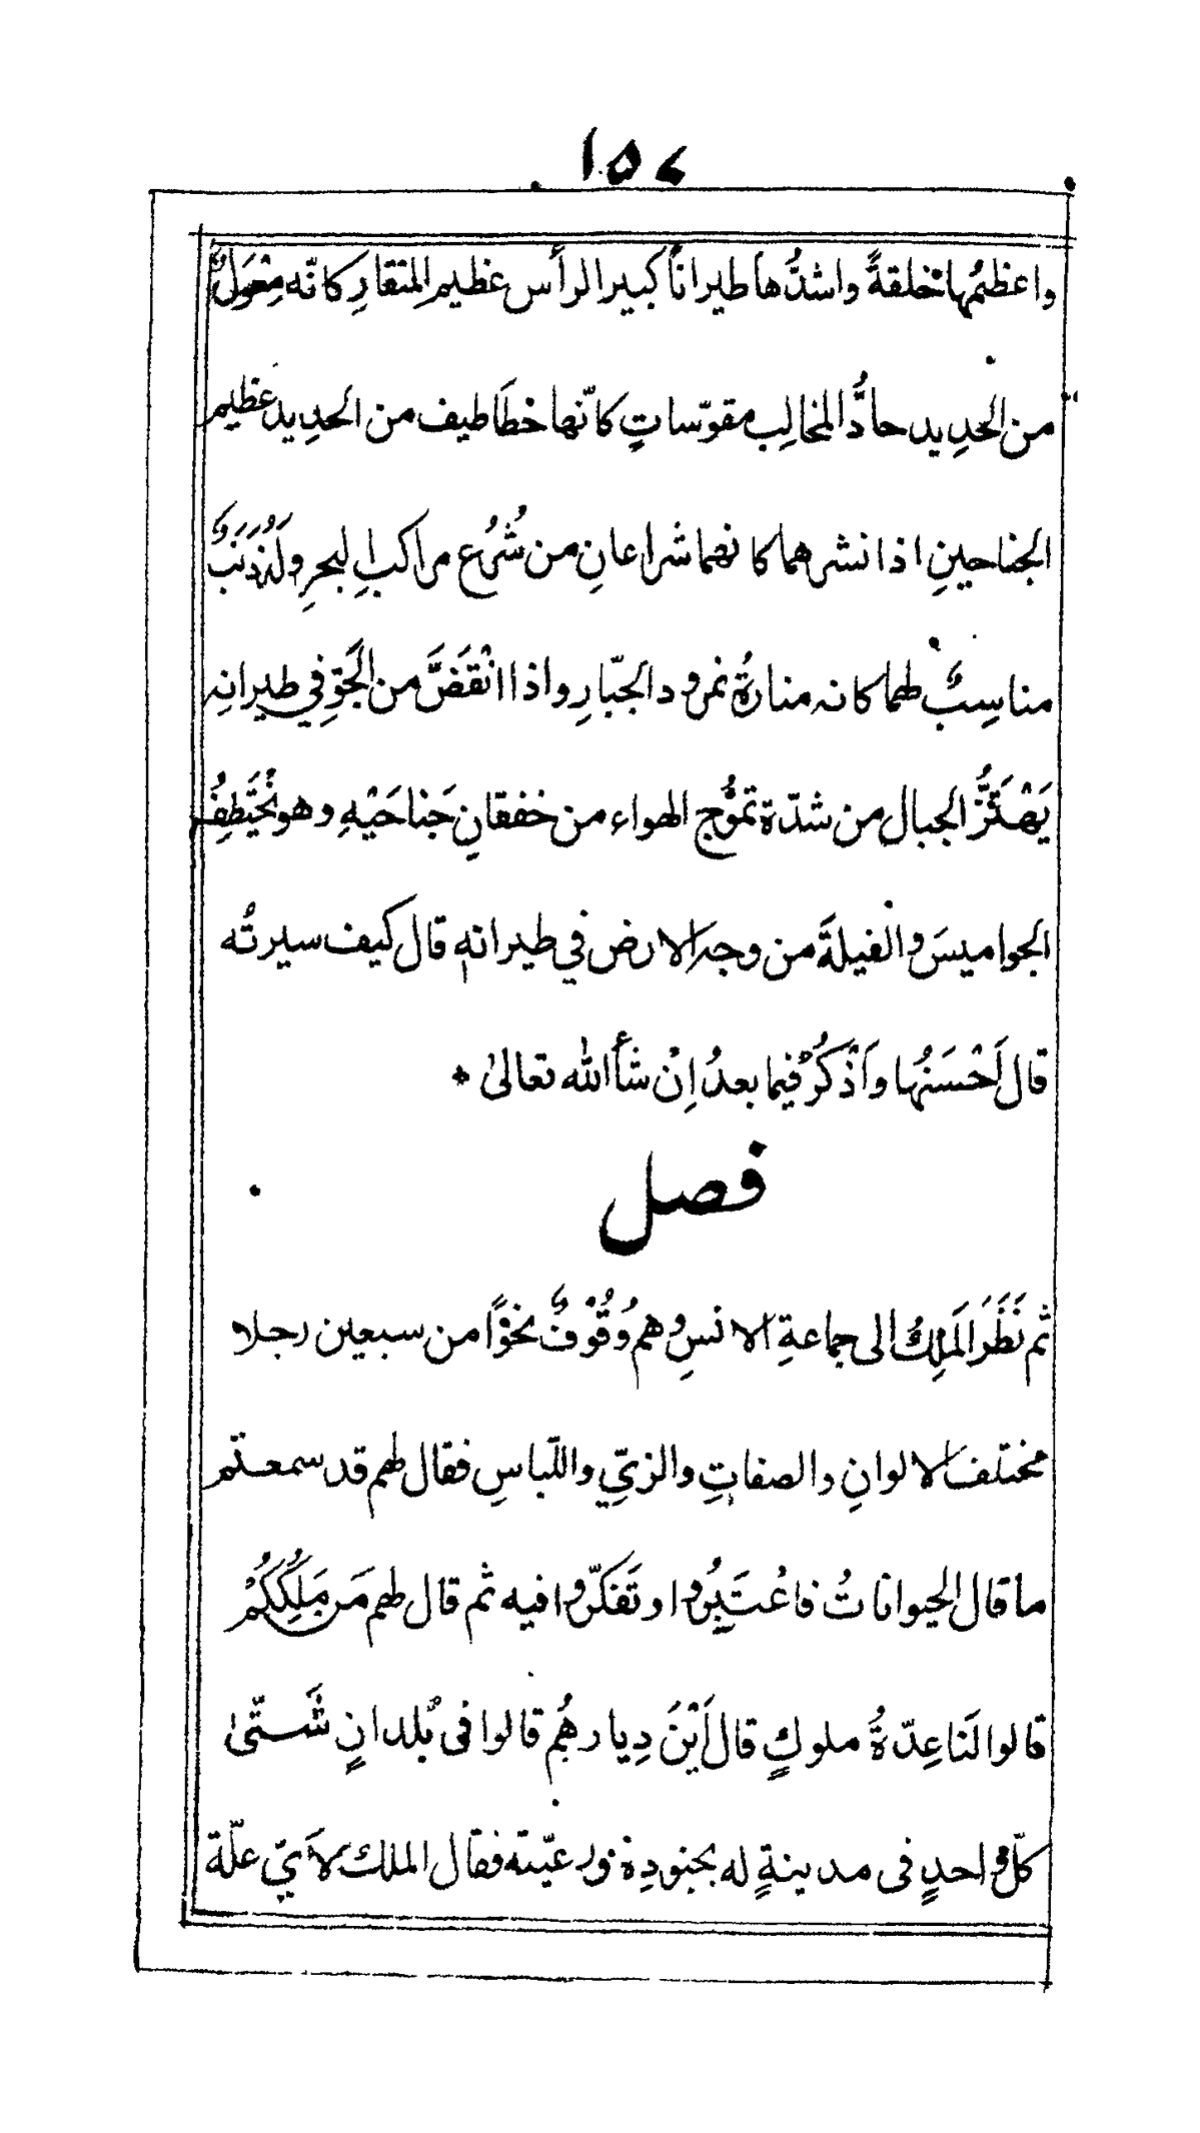 ١٥٧
واعظمُها خلقةً واشدُّها طيراناً كبير الرأس عظيم المنقارِ كانّه مِعْوَلٌ
من الحدِيد حادُّ المخالِب مقوّساتٍ كانّها خطَاطيف من الحدِيد عظيم
الجناحينِ اذا نشرهما كانهما شراعانِ من شُرُع مراكبِ البحرِ ولَهُ ذَنَبٌ
مناسِبٌ لهما كانه منارةُ نمرود الجبّارِ واذا انْقَضَّ من الجَوِّ في طيرانِه
يَهْتَزُّ الجبال من شدّة تموُّج الهواء من خفقانِ جَناحَيْهِ وهو يُخْتَطِفُ
الجواميسَ والفيلةَ من وجه الارض في طيرانهِ قال كيف سيرتُه
قال اَحْسَنُها واَذْكُرُ فيما بعدُ اِنْ شأَالله تعالىٰ *
فصل
ثم نَظَرَ المَلِكُ الى جماعةِ الانسِ وهم وُقُوْفٌ نحوًا من سبعين رجلا
مختلف الالوانِ والصفاتِ والزيِّ واللّباسِ فقال لهم قد سمعتم
ما قال الحيواناتُ فاعْتَبِرُوا وتَفَكّروا فيه ثم قال لهم مَن مَلِكُكُمْ
قالوا لَنا عِدّةُ ملوكٍ قال اَيْنَ دِيارهُم قالوا فى بُلدانٍ شَتّىٰ
كلّ واحدٍ فى مدينةٍ له بجنودِهٖ ورعيّته فقال الملك لاَيّ علّة